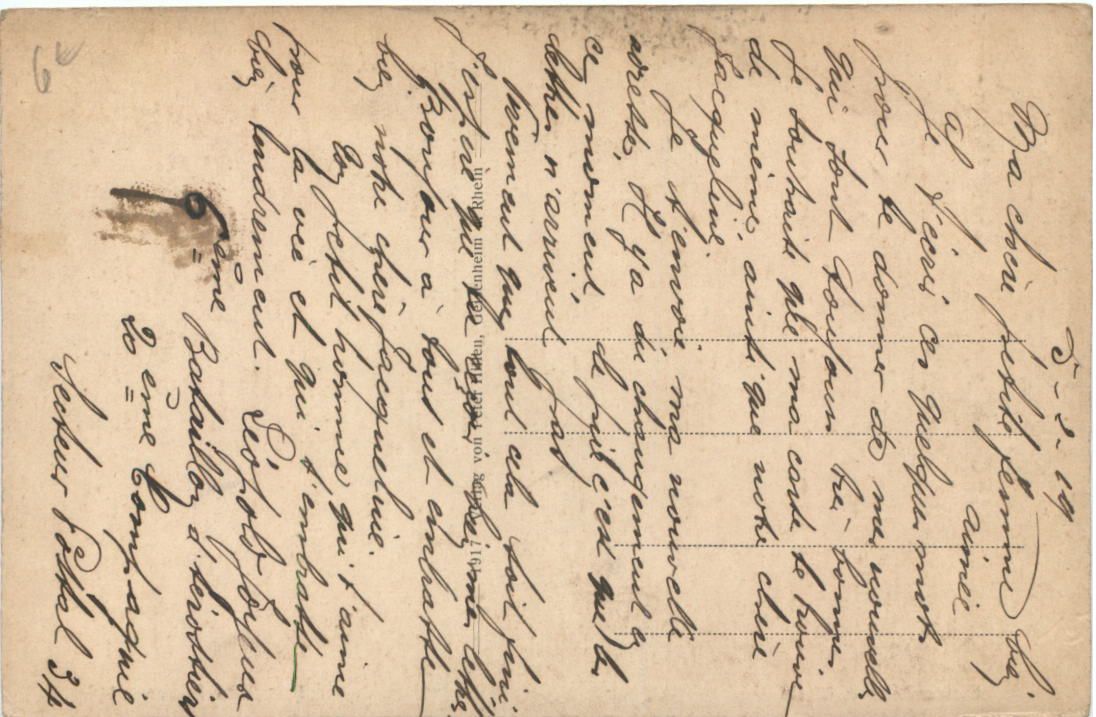 5-2-19
Ma chère petite femme bien
aimée
Je t'écris ces quelques mots
pour te donner de mes nouvelles
qui sont toujours très bonnes
je souhaite que ma carte te trouve
de même ainsi que notre chère
Jacqueline
Je t'envoie ma nouvelle
adresse, il y a du changement en
ce moment, le pire c'est que les
lettres n'arrivent pas
vivement que tout cela soit fini
J'espère que tu reçois bien mes lettres
Bonjour à tous et embrasse
bien notre chère Jacqueline.
Ton petit homme qui t'aime
pour la vie et qui t'embrasse
bien tendrement.
6ème Bataillon d'
20ème Compagnie
Secteur Postal 34
1917 Verlag von Peter Hilden, Geisenheim a. Rhein